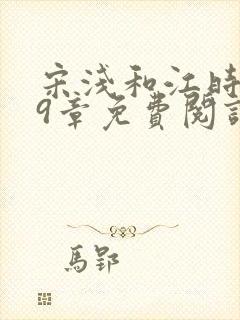 宋浅和江時
9章免費閱讀
馬郢